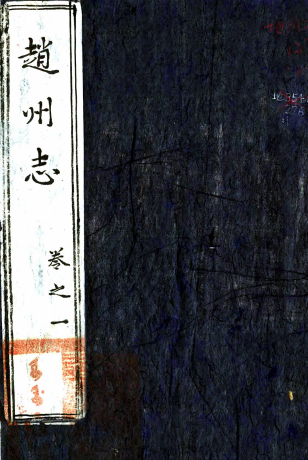 趙州志
卷之一